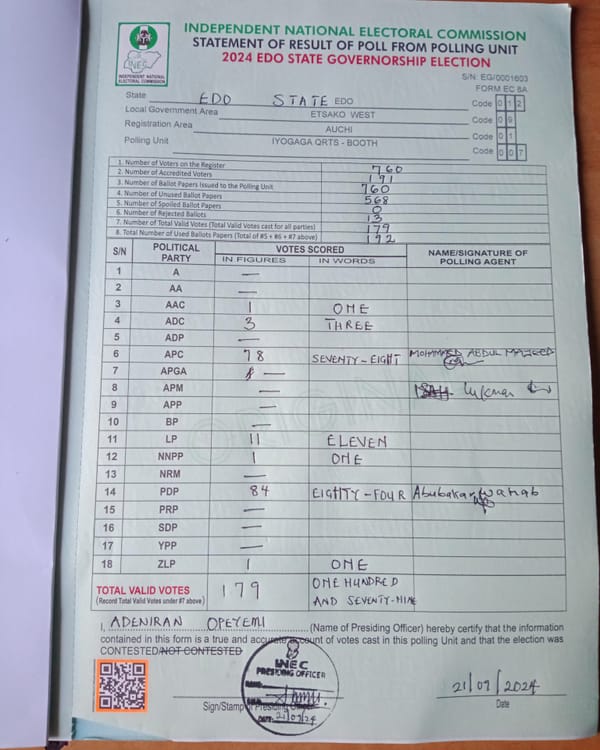 INDEPENDENT NATIONAL ELECTORAL COMMISSION
STATEMENT OF RESULT OF POLL FROM POLLING UNIT
2024 EDO STATE GOVERNORSHIP ELECTION
INEC
INDEPENDENT NATIONAL ELECTORAL COMMISSION
S/N: EG/0001603
FORM EC 8A
State EDO STATE EDO Code 0 1 2
Local Government Area ETSAKO WEST Code 0 9
Registration Area AUCHI Code 0 1
Polling Unit IYOGAGA QRTS - BOOTH Code 0 0 7
1. Number of Voters on the Register 760
2. Number of Accredited Voters 191
3. Number of Ballot Papers Issued to the Polling Unit 760
4. Number of Unused Ballot Papers 568
5. Number of Spoiled Ballot Papers 0
6. Number of Rejected Ballots 13
7. Number of Total Valid Votes (Total Valid Votes cast for all parties) 179
8. Total Number of Used Ballots Papers (Total of #5 + #6 + #7 above) 192
S/N POLITICAL PARTY VOTES SCORED NAME/SIGNATURE OF POLLING AGENT
IN FIGURES IN WORDS
1 A —
2 AA —
3 AAC 1 ONE
4 ADC 3 THREE
5 ADP —
6 APC 78 SEVENTY-EIGHT MOHAMMED ABDUL MAJEED
7 APGA —
8 APM —
9 APP —
10 BP —
11 LP 11 ELEVEN
12 NNPP 1 ONE
13 NRM —
14 PDP 84 EIGHTY-FOUR Abubakar Wahab
15 PRP —
16 SDP —
17 YPP —
18 ZLP 1 ONE
TOTAL VALID VOTES 179 ONE HUNDRED
(Record Total Valid Votes under #7 above) AND SEVENTY-NINE
ORIGINAL
I, ADENIRAN OPEYEMI (Name of Presiding Officer) hereby certify that the information
contained in this form is a true and accurate account of votes cast in this polling Unit and that the election was
CONTESTED/NOT CONTESTED
INEC
PRESIDING OFFICER
DATE: 21/09/24
Sign/Stamp of Presiding Officer
21/09/2024
Date